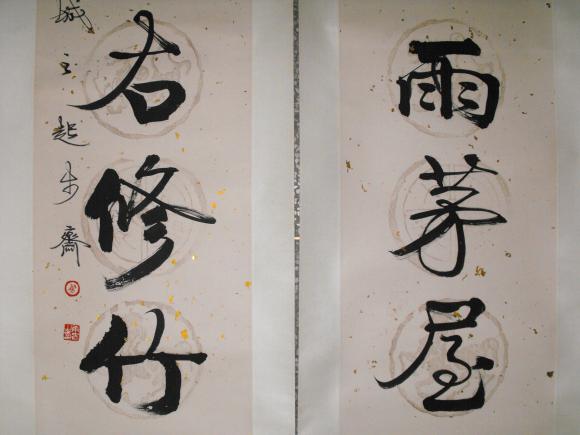 雨茅屋
右修竹
城起步齋